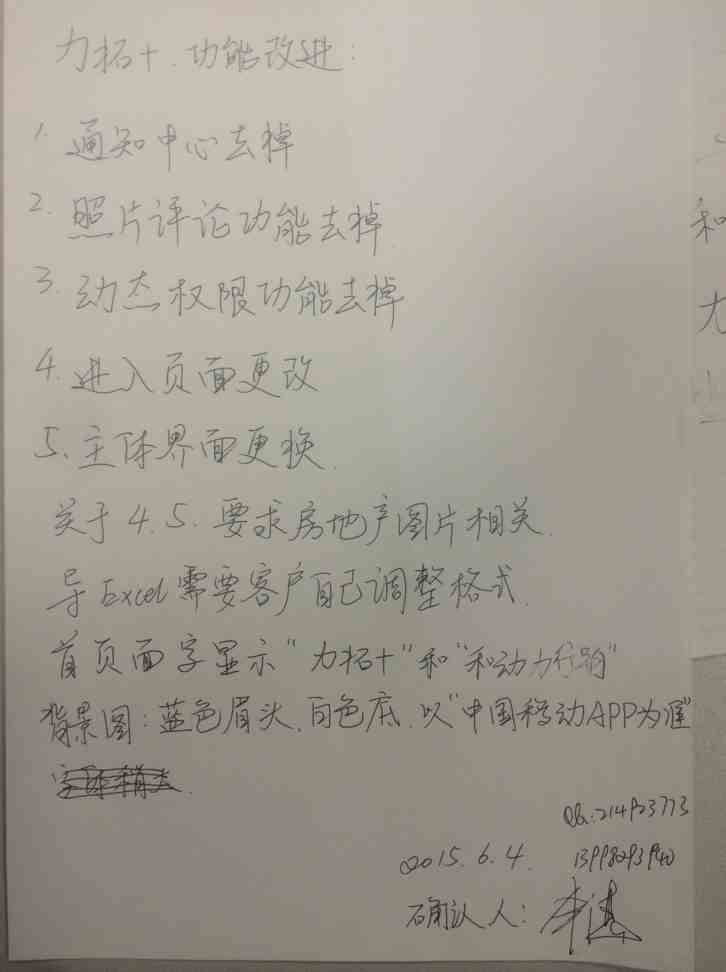 力拓+.功能改进:
1. 通知中心去掉
2. 照片评论功能去掉.
3. 动态权限功能去掉
4. 进入页面更改
5. 主体界面更换.
关于4.5.要求房地产图片相关.
导Excel需要客户自己调整格式.
首页面字显示"力拓+"和"和动力行销"
背景图:蓝色眉头.白色底.以"中国移动APP为准"
2015.6.4.
确认人:
和